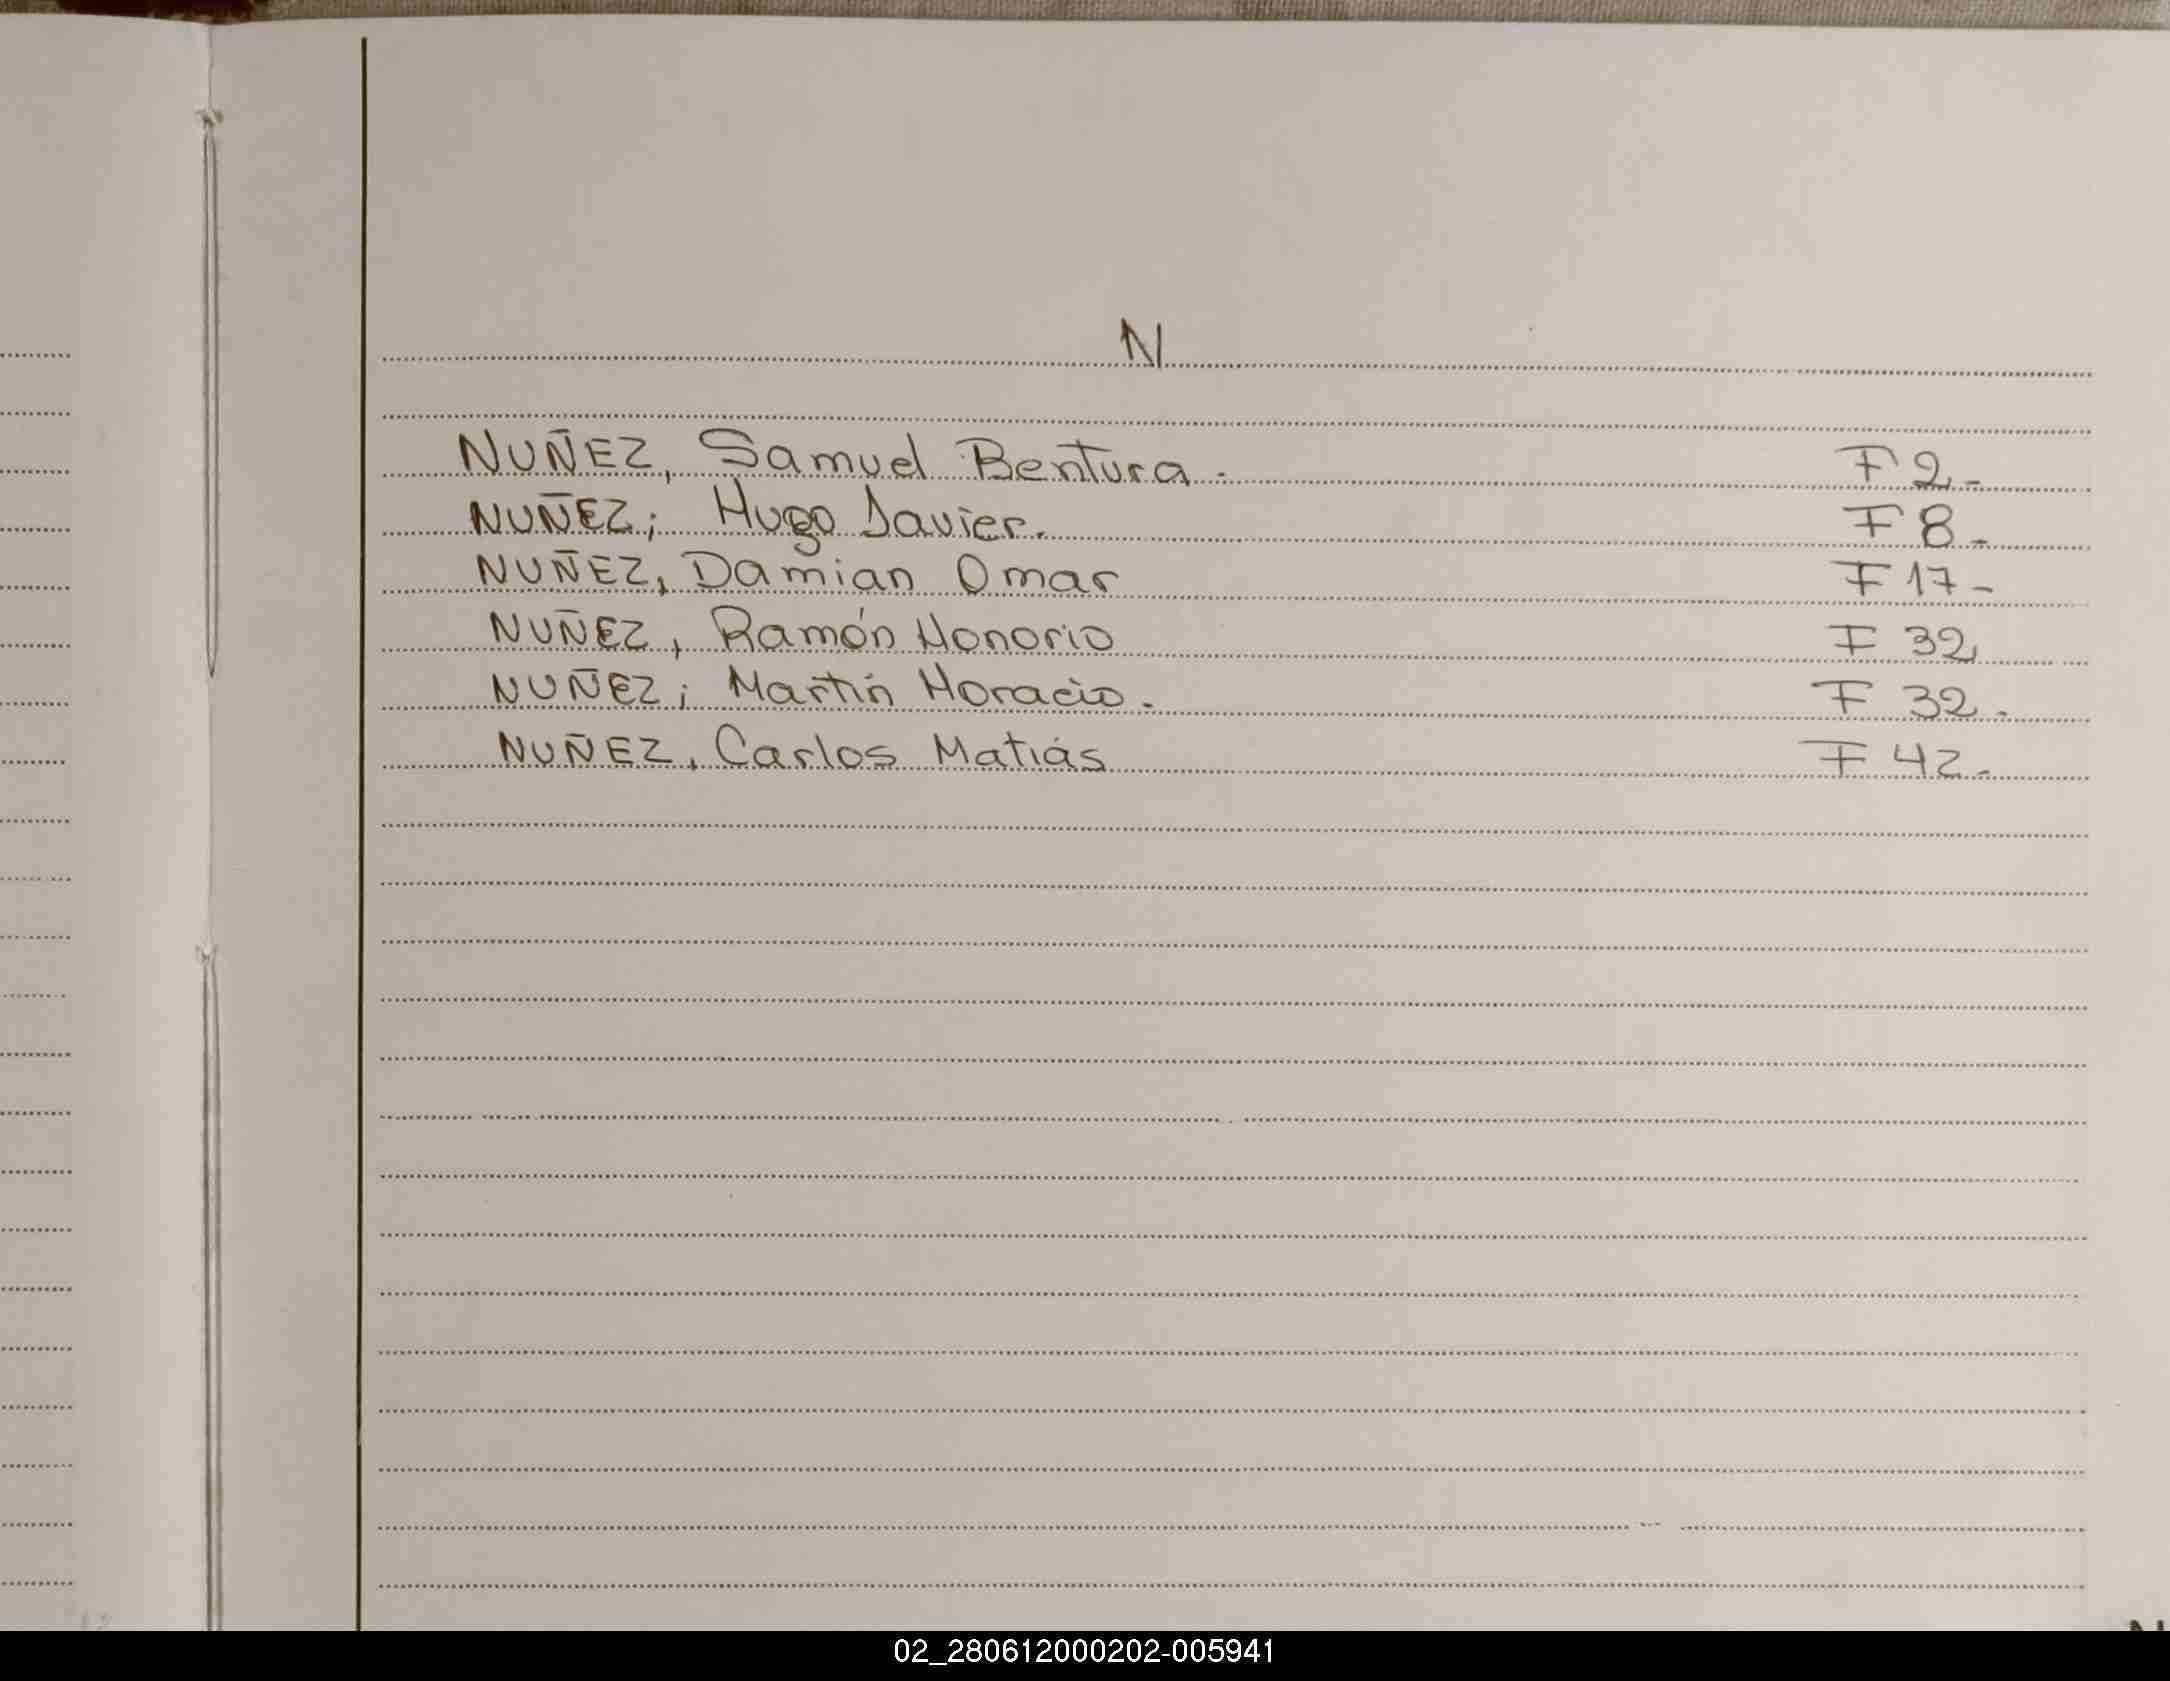 N
NUÑEZ, Samuel Bentura. F 2-
NUÑEZ; Hugo Javier. F 8-
NUÑEZ, Damian Omar F 17-
NUÑEZ, Ramón Honorio F 32
NUÑEZ; Martín Horacio. F 32.
NUÑEZ, Carlos Matiás F 42-
02_280612000202-005941